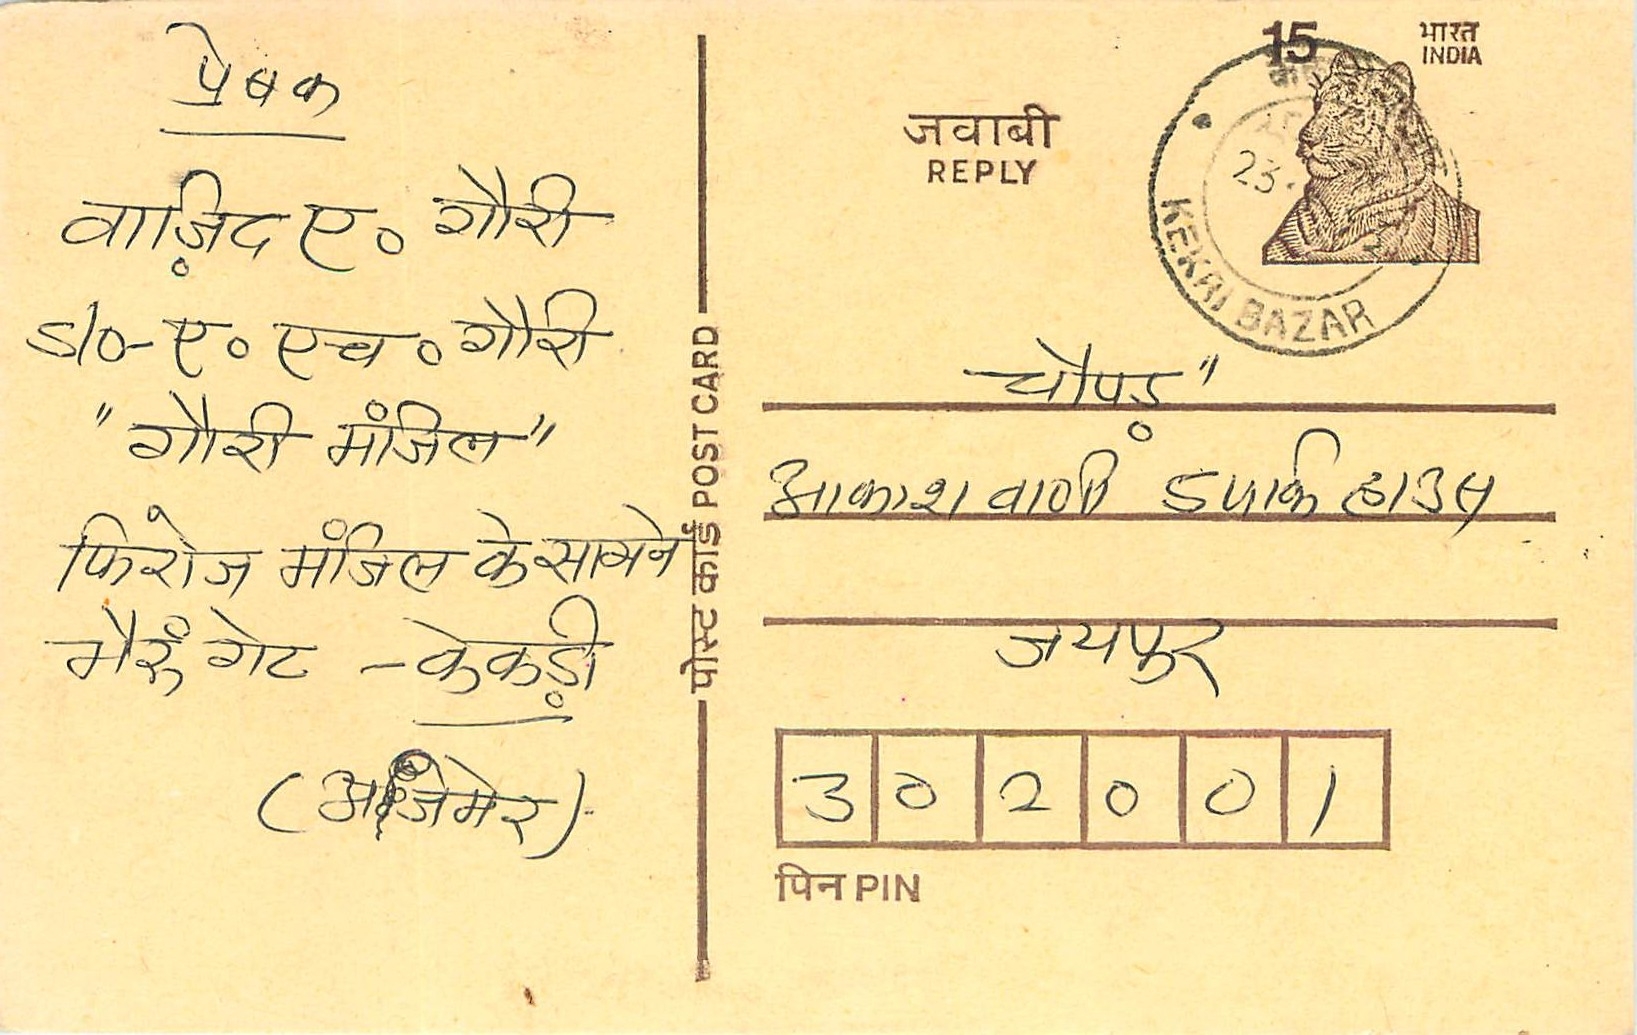 प्रेषक
वाज़िद ए० गौरी
S/o- ए० एच० गौरी
"गौरी मंजिल"
फिरोज मंजिल के सामने
भैरूं गेट - केकड़ी
(अजमेर)
पोस्ट कार्ड POST CARD
15
भारत
INDIA
जवाबी
REPLY
23
KEKRI BAZAR
चौपड़"
आकाशवाणी पार्क हाउस
जयपुर
302001
पिन PIN